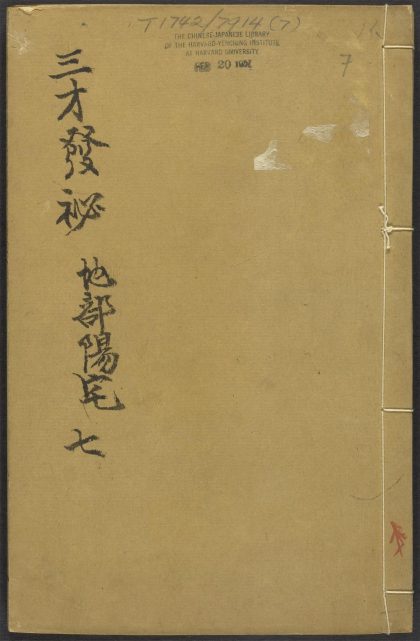 T1742/7914(7)
THE CHINESE-JAPANESE LIBRARY
OF THE HARVARD-YENCHING INSTITUTE
AT HARVARD UNIVERSITY
FEB 20 1951
7
三才發祕 地部陽宅 七